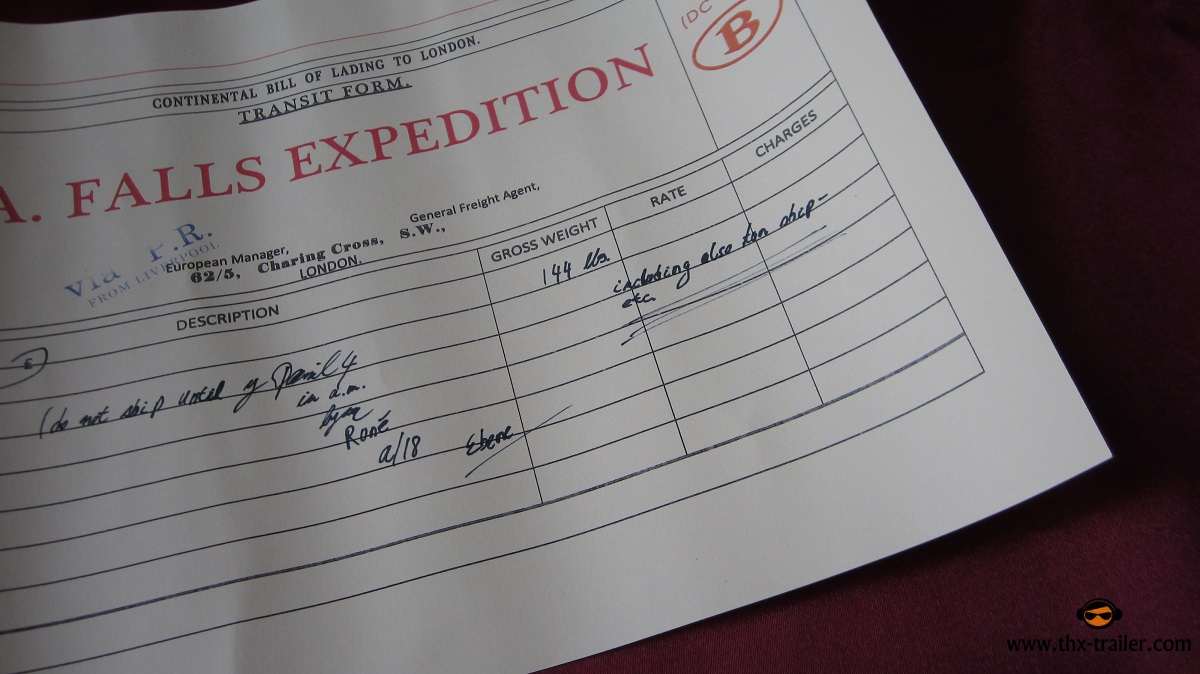 CONTINENTAL BILL OF LADING TO LONDON.
TRANSIT FORM.
(DC
B
A. FALLS EXPEDITION
via P.R.
FROM LIVERPOOL
European Manager,
General Freight Agent,
62/5, Charing Cross, S.W.,
LONDON.
DESCRIPTION
GROSS WEIGHT
RATE
CHARGES
144 lbs.
including also ship-
etc.
(do not ship until
in a.m.
René
a/18
www.thx-trailer.com